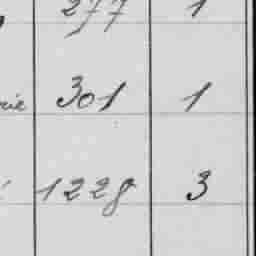 277 1
rie 301 1
1228 3